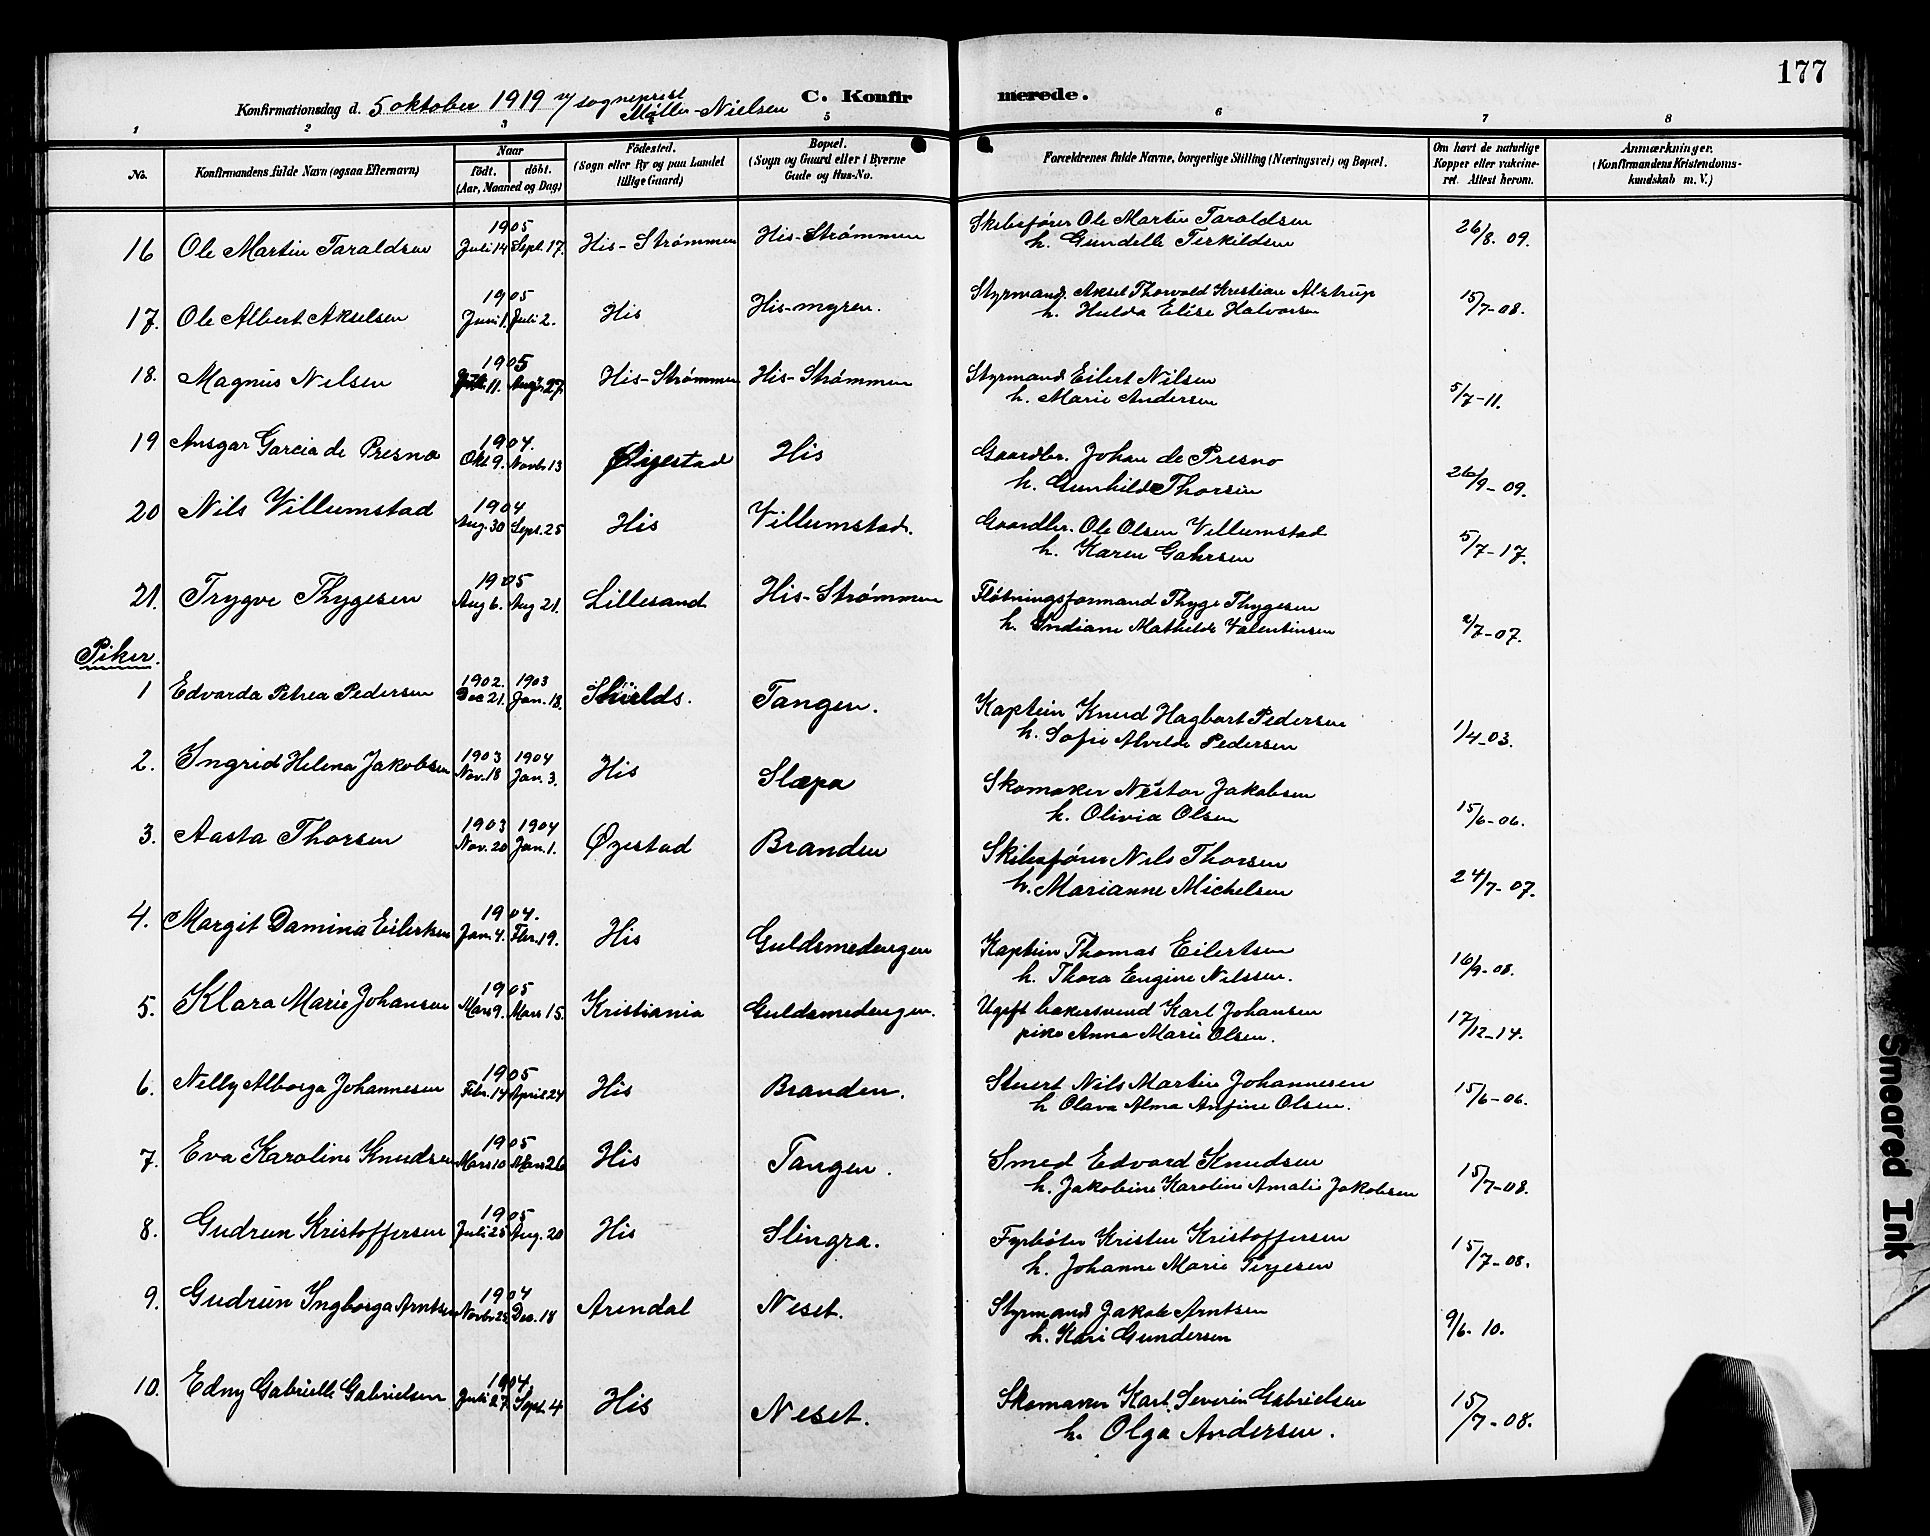 177
Konfirmationsdag d. 5 oktober 1919 v/ sogneprest Møller-Nielsen
C. Konfir merede.
1 2 3 5 6 7 8
No.
Konfirmandens fulde Navn (ogsaa Efternavn)
Naar
födt. döbt.
(Aar, Maaned og Dag)
Födested.
(Sogn eller By og paa Landet tillige Gaard)
Bopæl.
(Sogn og Gaard eller i Byerne Gade og Hus-No.
Forældrenes fulde Navne, borgerlige Stilling (Næringsvei) og Bopæl.
Om havt de naturlige Kopper eller vakcineret. Attest herom.
Anmærkninger.
(Konfirmandens Kristendomskundskab m. V.)
16 Ole Martin Taraldsen 1905 Juli 14 Sept. 17. His-Strømmen His-Strømmen Skibsfører Ole Martin Taraldsen 26/8. 09.
h. Gundelle Terkildsen
17. Ole Albert Akselsen 1905 Juni 1. Juli 2. His His-myren. Styrmand Aksel Thorvald Kristian Alstrup 15/7-08.
h. Hulda Elise Halvorsen
18. Magnus Nilsen 1905 11. Aug. 27. His-Strømmen His-Strømmen Styrmand Eilert Nilsen 5/7-11.
h. Marie Andersen
19 Ansgar Garcia de Presno 1904. Okt 9. Novbr 13 Øiestad His Gaardbr. Johan de Presno 26/9-09.
h. Gunhild Thorsen
20 Nils Villumstad 1904 Aug. 30 Sept. 25 His Villumstad. Gaardbr. Ole Olsen Villumstad 5/7-17.
h. Karen Gahrsen
21. Trygve Thygesen 1905 Aug 6. Aug 21. Lillesand His-Strømmen Fløtningsformand Thyge Thygesen /7-07.
h. Indiane Mathilde Valentinsen
Piker.
1 Edvarda Petrea Pedersen 1902. Dec 21. 1903 Jan. 18. Shields. Tangen. Kaptein Knud Hagbart Pedersen 1/4-03.
h. Sofie Alvilde Pedersen
2. Ingrid Helena Jakobsen 1903 Nov. 18 1904 Jan. 3. His Slæpa Skomaker Nestor Jakobsen 15/6-06.
h. Olivia Olsen
3. Aasta Thorsen 1903 Nov. 20 1904 Jan. 1. Øyestad Branden Skibsfører Nils Thorsen 24/7-07.
h. Marianne Michelsen
4. Margit Damina Eilertsen 1904. Jan. 4. Fbr. 19. His Guldsmedengen Kaptein Thomas Eilertsen 16/9-08.
h. Thora Engine Nilssen.
5. Klara Marie Johansen 1905 Mars 9. Mars 15. Kristiania Guldsmedengen. Ugift bakersvend Karl Johansen 17/12-14.
pike Anna Marie Olsen.
6. Nelly Alborga Johannesen 1905 Febr. 14 April 24 His Branden. Stuert Nils Martin Johannesen 15/6-06.
h Olava Alma Anfine Olsen.
7. Eva Karoline Knudsen 1905 Mars 10 Mars 26 His Tangen. Smed Edvard Knudsen 15/7-08.
h. Jakobine Karoline Amalie Jakobsen
8. Gudrun Kristoffersen 1905 Juli 25 Aug. 20 His Slingra. Fyrbøter Kristen Kristoffersen 15/7-08.
h. Johanne Marie Terjesen
9. Gudrun Ingborga Arntsen 1904 Novbr 25 Des. 18 Arendal Neset. Styrmand Jakob Arntsen 9/6. 10.
h. Kari Gundersen
10. Edny Gabrielle Gabrielsen 1904. Juli 27. Sept. 4 His Neset. Skomaker Karl Severin Gabrielsen 15/7-08.
h. Olga Andersen.
Smeared Ink